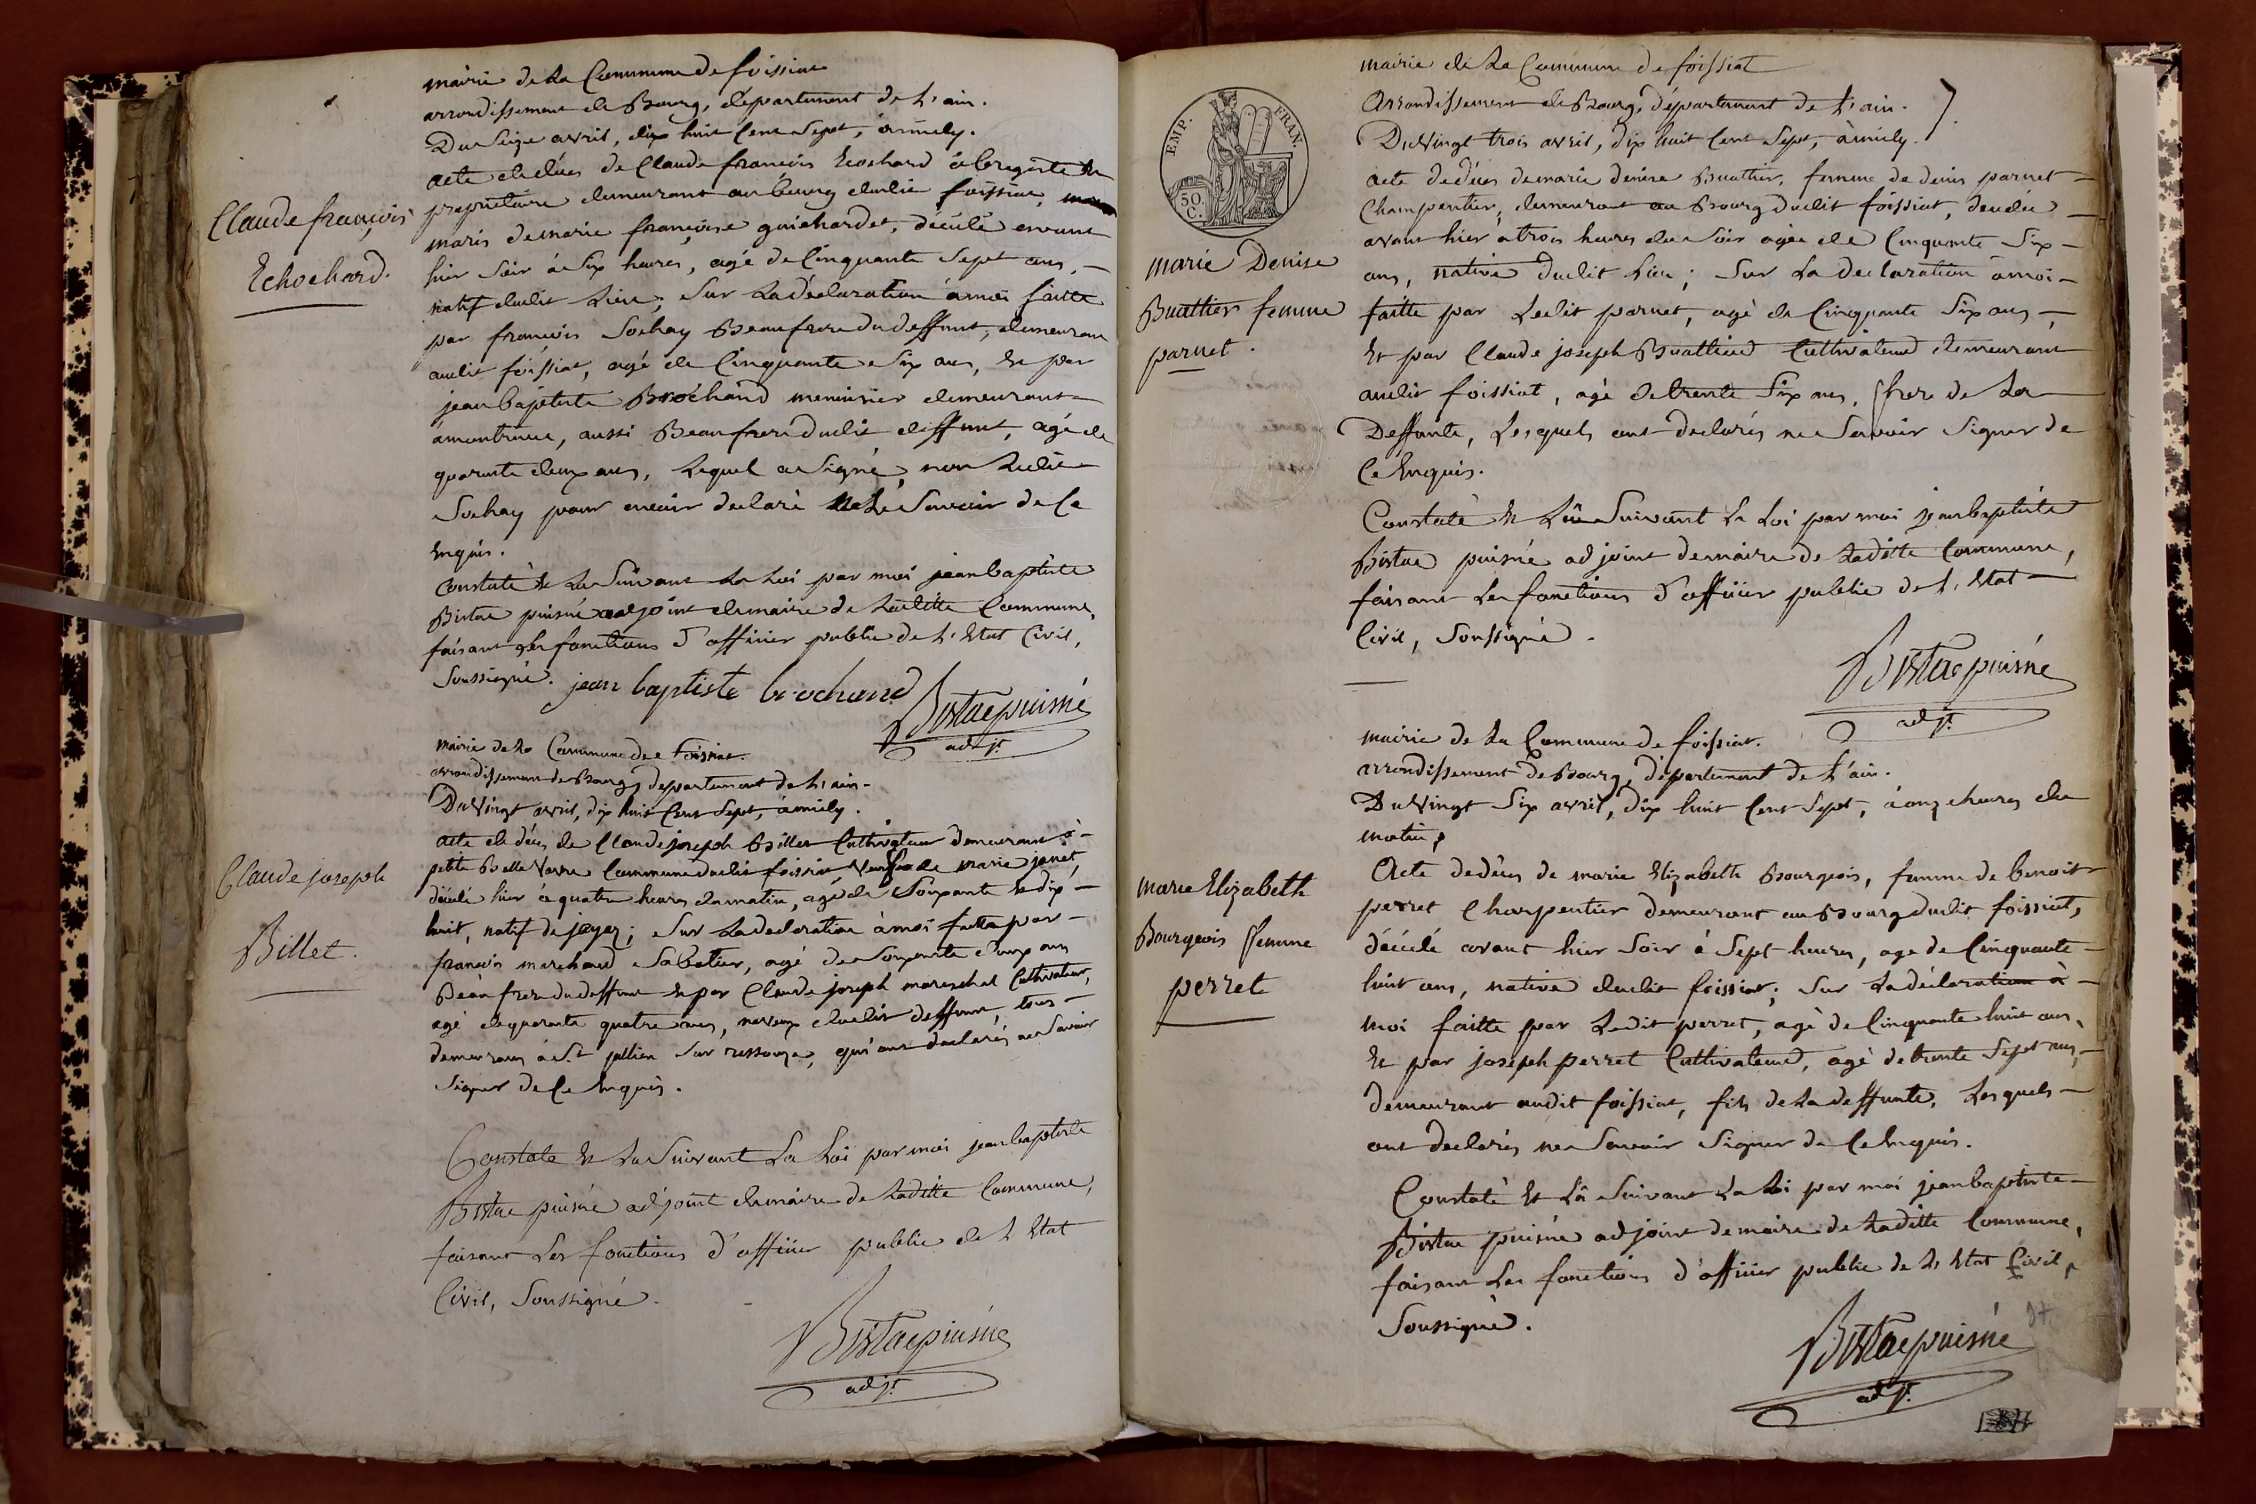 mairie de La Commune de foissiat
arrondissement de Bourg, département de L'ain.
Du Seize avril, dix huit Cent Sept, à midy.
acte de décès de Claude françois Echochard
propriétaire demeurant au bourg dudit foissiat,
maris de marie françoise guichardet, décédé avant
hier Soir à Six heures, agé de Cinquante Sept ans,
natif dudit Lieu; Sur La déclaration à moi faitte
par françois Sochay Beaufrere du deffunt, demeurant
audit foissiat, agé de Cinquante Six ans, Et par
jean baptiste Brochand menuisier demeurant
à montrevel, aussi Beaufrere dudit deffunt, agé de
quarante deux ans, Lequel a Signé, non Ledit
Sochay pour avoir declaré ne Le Savoir de Ce
Enquis.
Constaté Et Lu Suivant La Loi par moi jean baptiste
Bistac puisné adjoint demaire de Laditte Commune,
faisant Les fonctions d'officier public de L'Etat Civil,
Soussigné. jean baptiste brochand
Bistac puisné
adjt.
Claude françois
Echochard.
mairie de La Commune de Foissiat.
arrondissement de Bourg, département de L'ain.
Du Vingt avril, dix huit Cent Sept, à midy.
acte de décès de Claude joseph Billet Cultivateur demeurant à
petite Belle Vavre Commune dudit foissiat, veuf de marie janet,
décédé hier à quatre heures du matin, agé de Soixante et dix
huit, natif de jayaz; Sur La declaration à moi faitte par
françois marechand Sabotier, agé de Soixante deux ans
Beaufrere du deffunt Et par Claude joseph mareschal Cultivateur,
agé de quarante quatre ans, neveux dudit deffunt, tous
demeurans à St. jullien Sur ressouze, qui ont declarés ne Savoir
Signer de Ce Enquis.
Constaté Et Lu Suivant La Loi par moi jean baptiste
Bistac puisné adjoint demaire de Laditte Commune,
faisant Les fonctions d'officier public de L'Etat
Civil, Soussigné.
Bistac puisné
adjt.
Claude joseph
Billet.
mairie de La Commune de foissiat
Arrondissement de Bourg, département de L'ain.
Du Vingt trois avril, dix huit Cent Sept, à midy.
acte de décès de marie denise Buattier, femme de denis parnet
Charpentier, demeurant au Bourg dudit foissiat, décédée
avant hier à trois heures du Soir agée de Cinquante Six
ans, native dudit Lieu; Sur La declaration à moi
faitte par Ledit parnet, agé de Cinquante Six ans,
Et par Claude joseph Buattier Cultivateur demeurant
audit foissiat, agé de trente Six ans, frere de La
Deffunte, Lesquels ont declarés ne Savoir Signer de
Ce Enquis.
Constaté Et Lu Suivant La Loi par moi jean baptiste
Bistac puisné adjoint demaire de Laditte Commune,
faisant Les fonctions d'officier public de L'Etat
Civil, Soussigné.
Bistac puisné
adjt.
EMP. FRAN.
50.
C.
marie Denise
Buattier femme
parnet.
mairie de La Commune de foissiat.
arrondissement de Bourg, département de L'ain.
Du Vingt Six avril, dix huit Cent Sept, à onze heures du
matin,
Acte de décès de marie Elizabeth Bourgeois, femme de benoit
perret Charpentier demeurant au Bourg dudit foissiat,
décédé avant hier Soir à Sept heures, age de Cinquante
huit ans, native dudit foissiat; Sur La déclaration à
moi faitte par Ledit perret, agé de Cinquante huit ans,
Et par joseph perret Cultivateur, agé de trente Sept ans,
demeurant audit foissiat, fils de La deffunte, Lesquels
ont declarés ne Savoir Signer de Ce Enquis.
Constaté Et Lu Suivant La Loi par moi jean baptiste
Bistac puisné adjoint demaire de Laditte Commune,
faisant Les fonctions d'officier public de L'Etat Civil,
Soussigné.
Bistac puisné
adjt.
marie Elizabeth
Bourgeois femme
perret